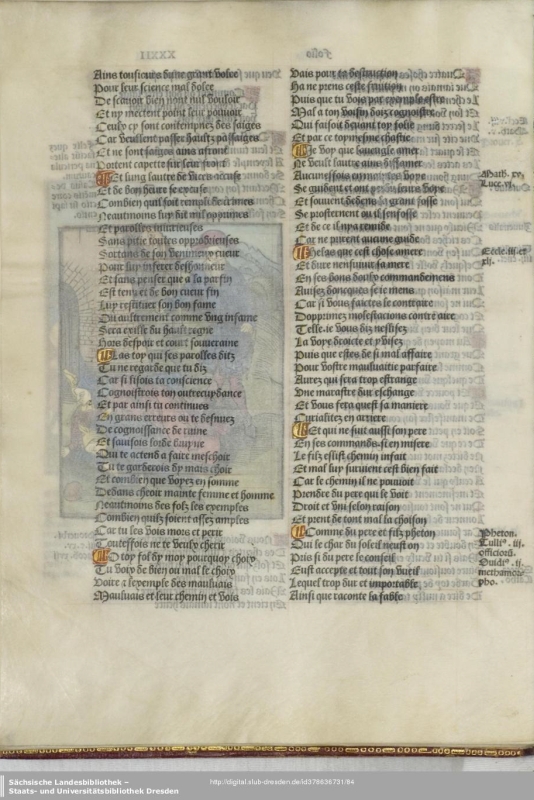 Pour leur science mal dolee
De scauoir bien nont nul vouloir
Et ny mectent point leur pouuoir
Ceulx cy sont contempnez des saiges
Car veullent passer haultz passaiges
Et ne sont saiges ains
Portent capette sur leur front
Et lung lautre de vices accuse
Et de bon heure se excuse
Combien quil soit rempli de crimes
Neaumoins luy dit mil opprimes
Et parolles iniurieuses
Sans pitie toutes opprobrieuses
Sortans de son venimeux cueur
Pour luy inferer deshonneur
Et sans penser que a la par fin
Est tenu et de bon cueur fin
Luy restituer son bon fame
Ou aultrement comme vng infame
Sera exille du hault regne
Hors despoir et court souueraine
Las toy qui ses parolles ditz
Tu ne regarde que tu diz
Car si lisois ta conscience
Cognoistrois ton oultrecuydance
Et par ainsi tu continues
En grans erreurs ou te desnues
De cognoissance de ruine
Et
Qui te actend a faire meschoir
Tu te garderois dy mais choir
Et combien que voyez en somme
Dedans cheoir mainte femme et homme
Neaumoins des folz les exemples
Combien quilz soient assez amples
Car tu les vois mors et perir
Touteffois ne te veulx cherir
O toy fol dy moy pourquoy choix
Tu voy de bien ou mal le choix
Voire a lexemple des mauluais
Mauluais et leur chemin et vois
Vais pour ta destruction
Ha ne prens ceste fruition
Puis que tu vois par exemple estre
Mal a ton voisin dois cognoistre
Qui faisoit deuant toy folie
Et par ce toymesme chastie
Je voy que laueugle amer
Ne veult lautre ains diffamer
Aucuneffois en
Se guident et ont prins leurs voye
Et souuent dedens la grant fosse
Se prosternent ou il senfosse
Et de ce il nya remide
Car ne purent aucune guide
Helas que cest chose amere
Et dure nensuiuir sa mere
En ses bons doulx commandemens
Auisez doncques se ie mens
Car si vous faictes le contraire
Dopprimez molestacions contraire
Telle ie vous diz neslisez
La voye droicte et y visez
Puis que estes de si mal affaire
Pour vostre mauluaitie parfaire
Aurez qui sera trop estrange
Vne marastre dur eschange
Et vous fera quest sa maniere
Curialitez en arriere
Et qui ne suit aussi son pere
En ses commandz si en misere
Le filz est chemin infait
Et mal luy suruient cest bien fait
Car le chemin il ne pouuoit
Prendre du pere qui le voit
Droit et vni selon raison
Et prent de tout mal la choison
Comme du pere et filz pheton
Qui le char du soleil neust on
Pris si du pere le conseil
Eust accepte et tout son vueil
Lequel trop dur et importable
Ainsi que raconte la fable
Math. xv
Luce. vi.
Eccle. iii. et
xii.
Pheton.
Tulli⁹. iii.
officiorum.
Ouidi⁹. ii.
methamor
pho.
Sächsische Landesbibliothek –
Staats- und Universitätsbibliothek Dresden
http://digital.slub-dresden.de/id378636731/64